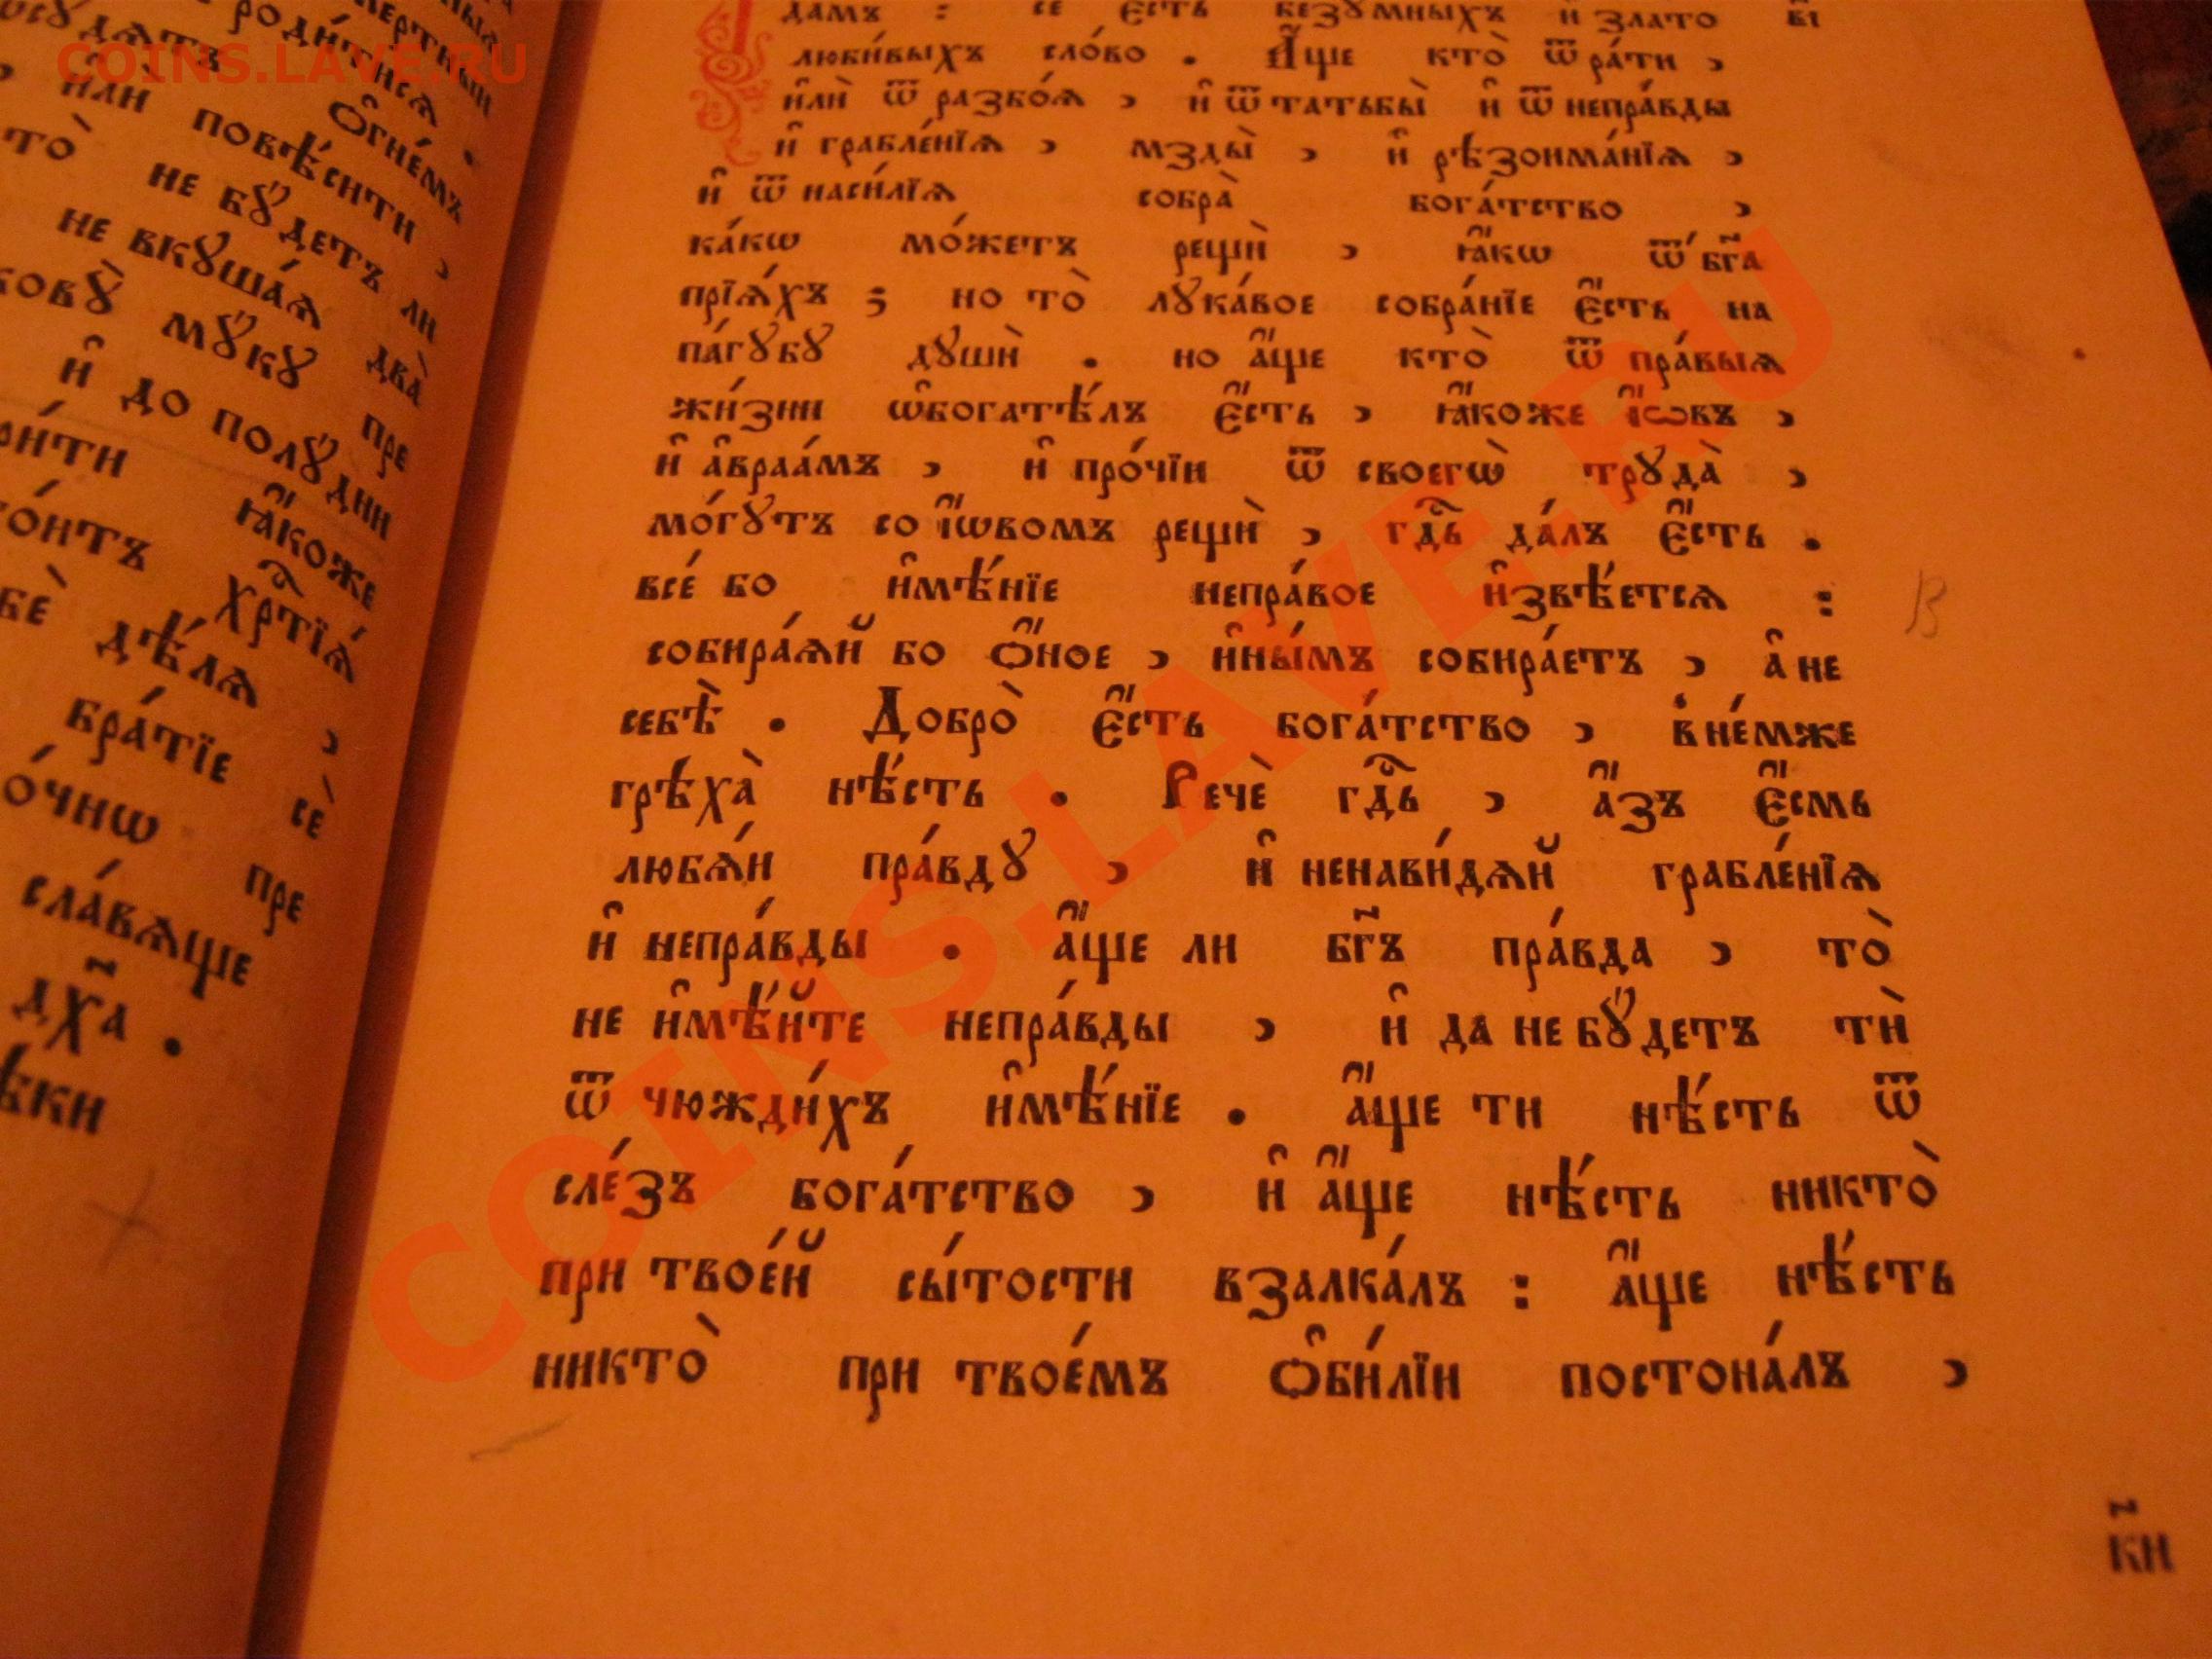 COINS.LAVE.RU
роди́тисѧ
ѻ҆гне́мъ
и҆лѝ повѣ́сити ,
то̀ не бꙋ́детъ ли
не вкꙋша́ѧ два̀
мꙋ́кꙋ пре
и҆ до полꙋ́дни
ꙗ҆́коже
хрⷭ҇тїѧ́
дѣ́лѧ ,
бра́тїе сѐ
пре
сла́вѧще
дх҃а .
дамъ : се є҆́сть безꙋмныхъ и҆ злато
люби́выхъ сло́во . А҆́ще кто̀ ѿ ра́ти ,
и҆лѝ ѿ разбо́ѧ , и҆ ѿ татьбы̀ и҆ ѿ непра́вды
и҆ грабле́нїѧ , мзды̀ , и҆ рѣзоима́нїѧ ,
и҆ ѿ наси́лїѧ собра̀ бога́тство ,
ка́кѡ мо́жетъ рещѝ , ꙗ҆́кѡ ѿ бг҃а
прїѧ́хъ ; но то̀ лꙋка́вое собра́нїе є҆́сть на
па́гꙋбꙋ дꙋшѝ . но а҆́ще кто̀ ѿ пра́выѧ
жи́зни ѡ҆богатѣ́лъ є҆́сть , ꙗ҆́коже і҆́ѡвъ ,
и҆ а҆враа́мъ , и҆ про́чїи ѿ своегѡ̀ трꙋда̀ ,
мо́гꙋтъ со і҆́ѡвомъ рещѝ , гдⷭ҇ь да́лъ є҆́сть .
все́ бо и҆мѣ́нїе непра́вое и҆звѣ́етсѧ :
собира́ѧй бо ѻ҆́ное , и҆ны́мъ собира́етъ , а҆ не
себѣ̀ . Добро̀ є҆́сть бога́тство , в не́мже
грѣха̀ нѣ́сть . Речѐ гдⷭ҇ь , а҆́зъ є҆́смь
любѧ́и пра́вдꙋ , и҆ ненави́дѧй грабле́нїѧ
и҆ непра́вды . а҆́ще ли бг҃ъ пра́вда , то̀
не и҆мѣ́йте непра́вды , и҆ да не бꙋ́детъ тѝ
ѿ чюжди́хъ и҆мѣ́нїе . а҆́ще ти нѣ́сть ѿ
сле́зъ бога́тство , и҆ а҆́ще нѣ́сть никто̀
при твое́й сы́тости взалка́лъ : а҆́ще нѣ́сть
никто̀ при твое́мъ ѻ҆би́лїи постона́лъ ,
к҃и
COINS.LAVE.RU